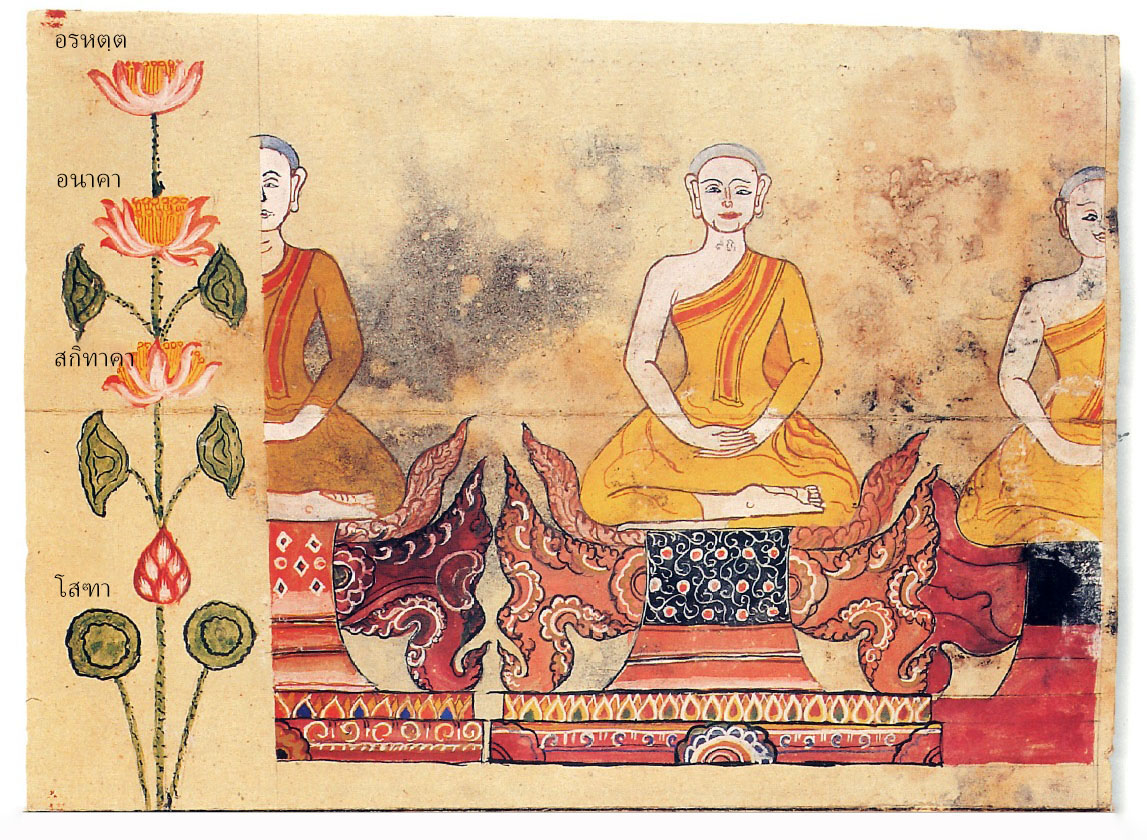 อรหตฺต
อนาคา
สกิทาคา
โสฑา